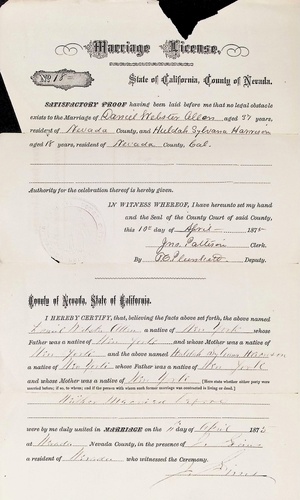 Marriage License.
No. 18
State of California, County of Nevada.
SATISFACTORY PROOF having been laid before me that no legal obstacle
exists to the Marriage of Daniel Webster Allen aged 37 years,
resident of Nevada County, and Huldah Sylvana Harrison
aged 18 years, resident of Nevada County, Cal.
Authority for the celebration thereof is hereby given.
IN WITNESS WHEREOF, I have hereunto set my hand
and the Seal of the County Court of said County,
this 10th day of April 187
Jno. Pattison Clerk.
By Deputy.
County of Nevada, State of California.
I HEREBY CERTIFY, that, believing the facts above set forth, the above named
Daniel Webster Allen a native of New York whose
Father was a native of New York and whose Mother was a native of
New York and the above named Huldah Sylvana Harrison
a native of New York whose Father was a native of New York
and whose Mother was a native of New York
were by me duly united in MARRIAGE on the day of April 187
at Nevada Nevada County, in the presence of
a resident of Nevada who witnessed the Ceremony.